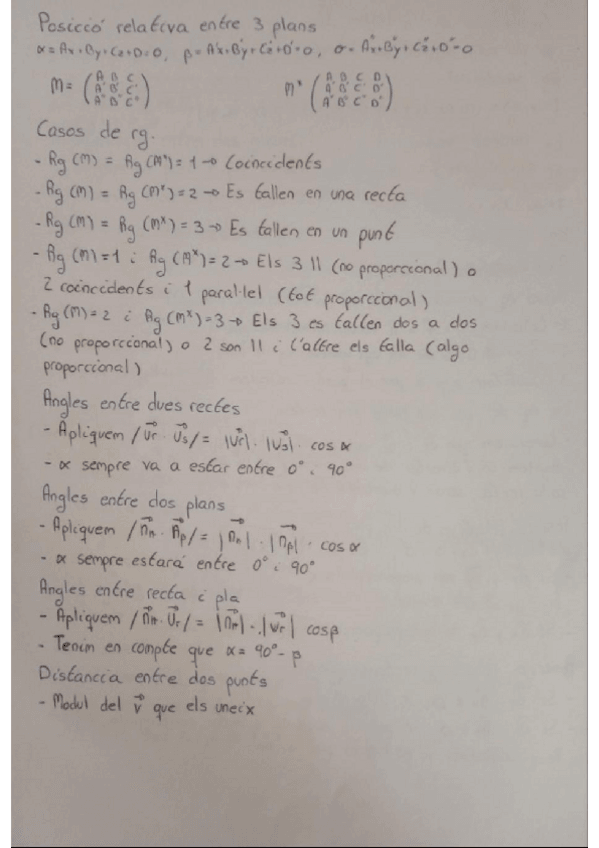 Posicció relativa entre 3 plans
α = Ax+By+Cz+D=0, β = A'x+B'y+C'z+D'=0, σ = A''x+B''y+C''z+D''=0
M = (A B C / A' B' C' / A'' B'' C'') M* (A B C D / A' B' C' D' / A'' B'' C'' D'')
Casos de rg.
- Rg (M) = Rg (M*) = 1 → Coincidents
- Rg (M) = Rg (M*) = 2 → Es tallen en una recta
- Rg (M) = Rg (M*) = 3 → Es tallen en un punt
- Rg (M) = 1 i Rg (M*) = 2 → Els 3 || (no proporccional) o
2 coinccidents i 1 paral·lel (tot proporccional)
- Rg (M) = 2 i Rg (M*) = 3 → Els 3 es tallen dos a dos
(no proporccional) o 2 son || i l'altre els talla (algo
proporccional)
Angles entre dues rectes
- Apliquem /v⃗r · v⃗s/ = |v⃗r| · |v⃗s| · cos α
- α sempre va a estar entre 0° i 90°
Angles entre dos plans
- Apliquem /n⃗π · n⃗β/ = |n⃗π| · |n⃗β| · cos α
- α sempre estará entre 0° i 90°
Angles entre recta i pla
- Apliquem /n⃗π · v⃗r/ = |n⃗π| · |v⃗r| cosβ
- Tenim en compte que α = 90° - β
Distanccia entre dos punts
- Modul del v⃗ que els uneix